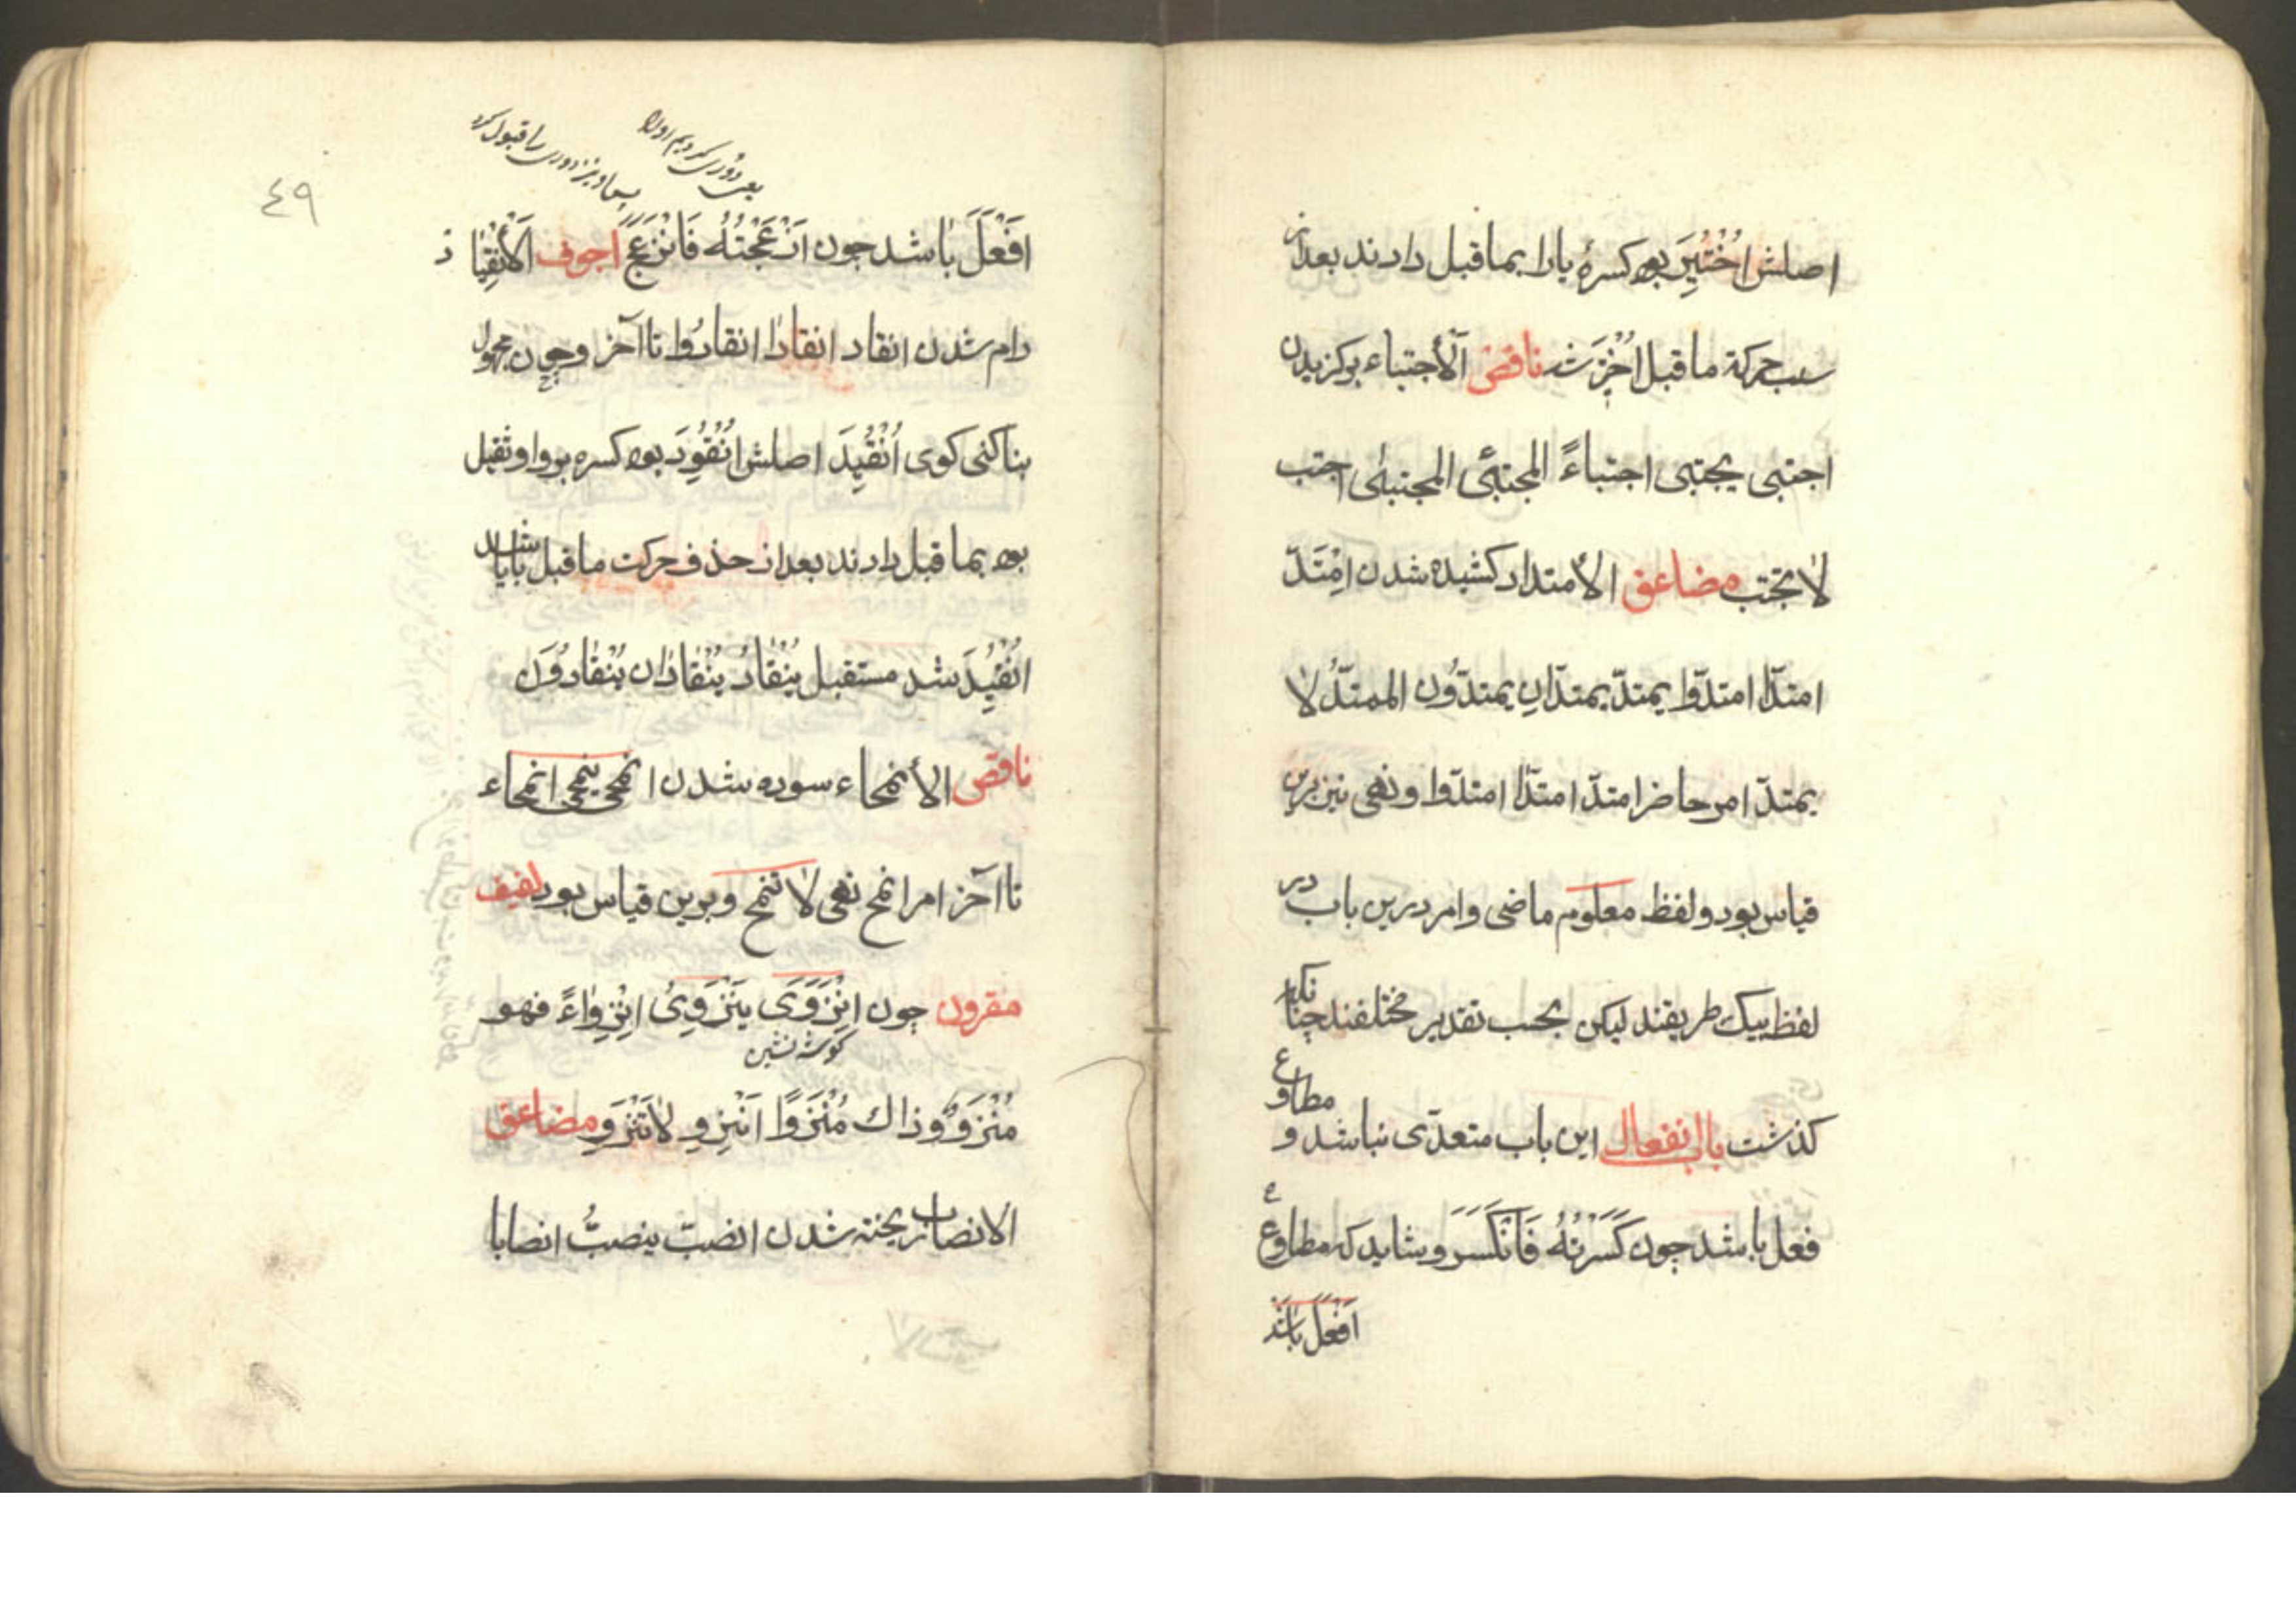 اصلش اُخْتُیِرَ بود کسرهٔ یا را بما قبل دادند بعد از
سلب حرکة ما قبل اُخْتِیرَ شد ناقص اَلْأجتباء برکزیدن
اجتبی یجتبی اجتباءً المجتبی المجتبیٰ اجتب
لا تجتب مضاعف الأمتداد کشیده شدن اِمْتَدّ
امتدّا امتدّوا یمتدّ یمتدّانِ یمتدّون الممتدّ لا
یمتدّ امر حاضر امتدّ امتدّا امتدّوا و نهی نیز برین
قیاس بود و لفظ معلوم ماضی و امر درین باب در
لفظ بیک طریقند لیکن بحسب تقدیر مختلفند چنانکه
کذشت باب انفعال این باب متعدّی نباشد و مطاوع
فعل باشد چون کَسَرْتُهُ فَانْکَسَرَ و شاید که مطاوع
اَفْعَلَ باشد
٤٩
یعنی دوری کردیم اورا
پس او نیز دوری را قبول کرد
اَفْعَلَ باشد چون اَزْعَجْتُهُ فَانْزَعَجَ اجوف اَلْأنْقِیَاد
رام شدن انقاد انقادا انقادُوا تا آخر و چون مجهول
بنا کنی کوی اُنْقُیِدَ اصلش اُنْقُوِدَ بود کسره بر واو ثقیل
بود بما قبل دادند بعد از حذف حرکت ما قبل با یا شد
اُنْقُیِدَ شد مستقبل یَنْقَادُ یَنْقَادَان یَنْقَادُونَ
ناقص الأنمحاء سوده شدن انمحی ینمحی انمحاء
تا آخر امر انمح نهی لا تنمح و برین قیاس بود لفیف
مقرون چون اِنْزَوَی یَنْزَوِیُ اِنْزِوَاءً فهو
کوشه نشین
مُنْزَوٍ وذاك مُنْزَوًا اَنْزِوِ لاٰتَنْزَوِ مضاعف
الانصباب ریخته شدن انصبّ ینصبُّ انصبابا